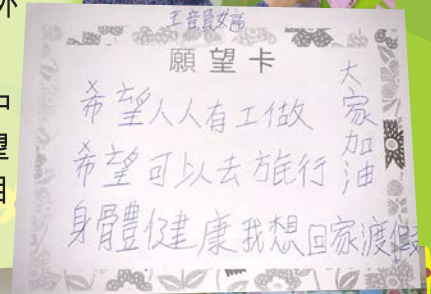 願望卡
希望人人有工做
希望可以去旅行
身體健康我想回家渡假
大家加油
望